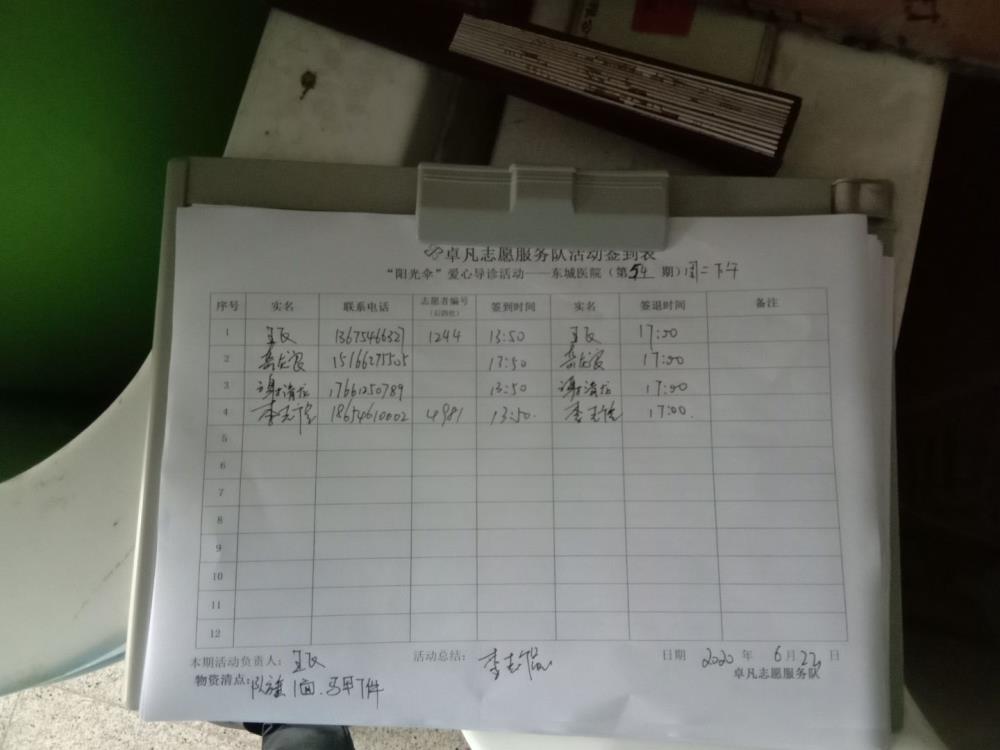 卓凡志愿服务队活动签到表
“阳光伞”爱心导诊活动——东城医院（第54期）周二下午
序号 实名 联系电话 志愿者编号（后四位） 签到时间 实名 签退时间 备注
1 1367546632 1244 13:50 17:00
2 15166277505 13:50 17:00
3 谢清 17661250789 13:50 谢清 17:00
4 李 18654610002 4981 13:50. 李 17:00.
5
6
7
8
9
10
11
12
本期活动负责人： 活动总结： 李志 日期 2020 年 6 月 22 日
物资清点：队旗1面.马甲7件 卓凡志愿服务队